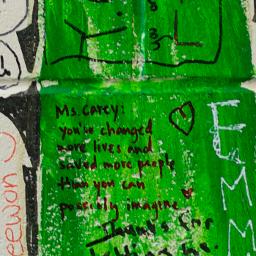 Ms. Carey:
you've changed
more lives and
saved more people
than you can
possibly imagine
Thanks for
eewon
EMM